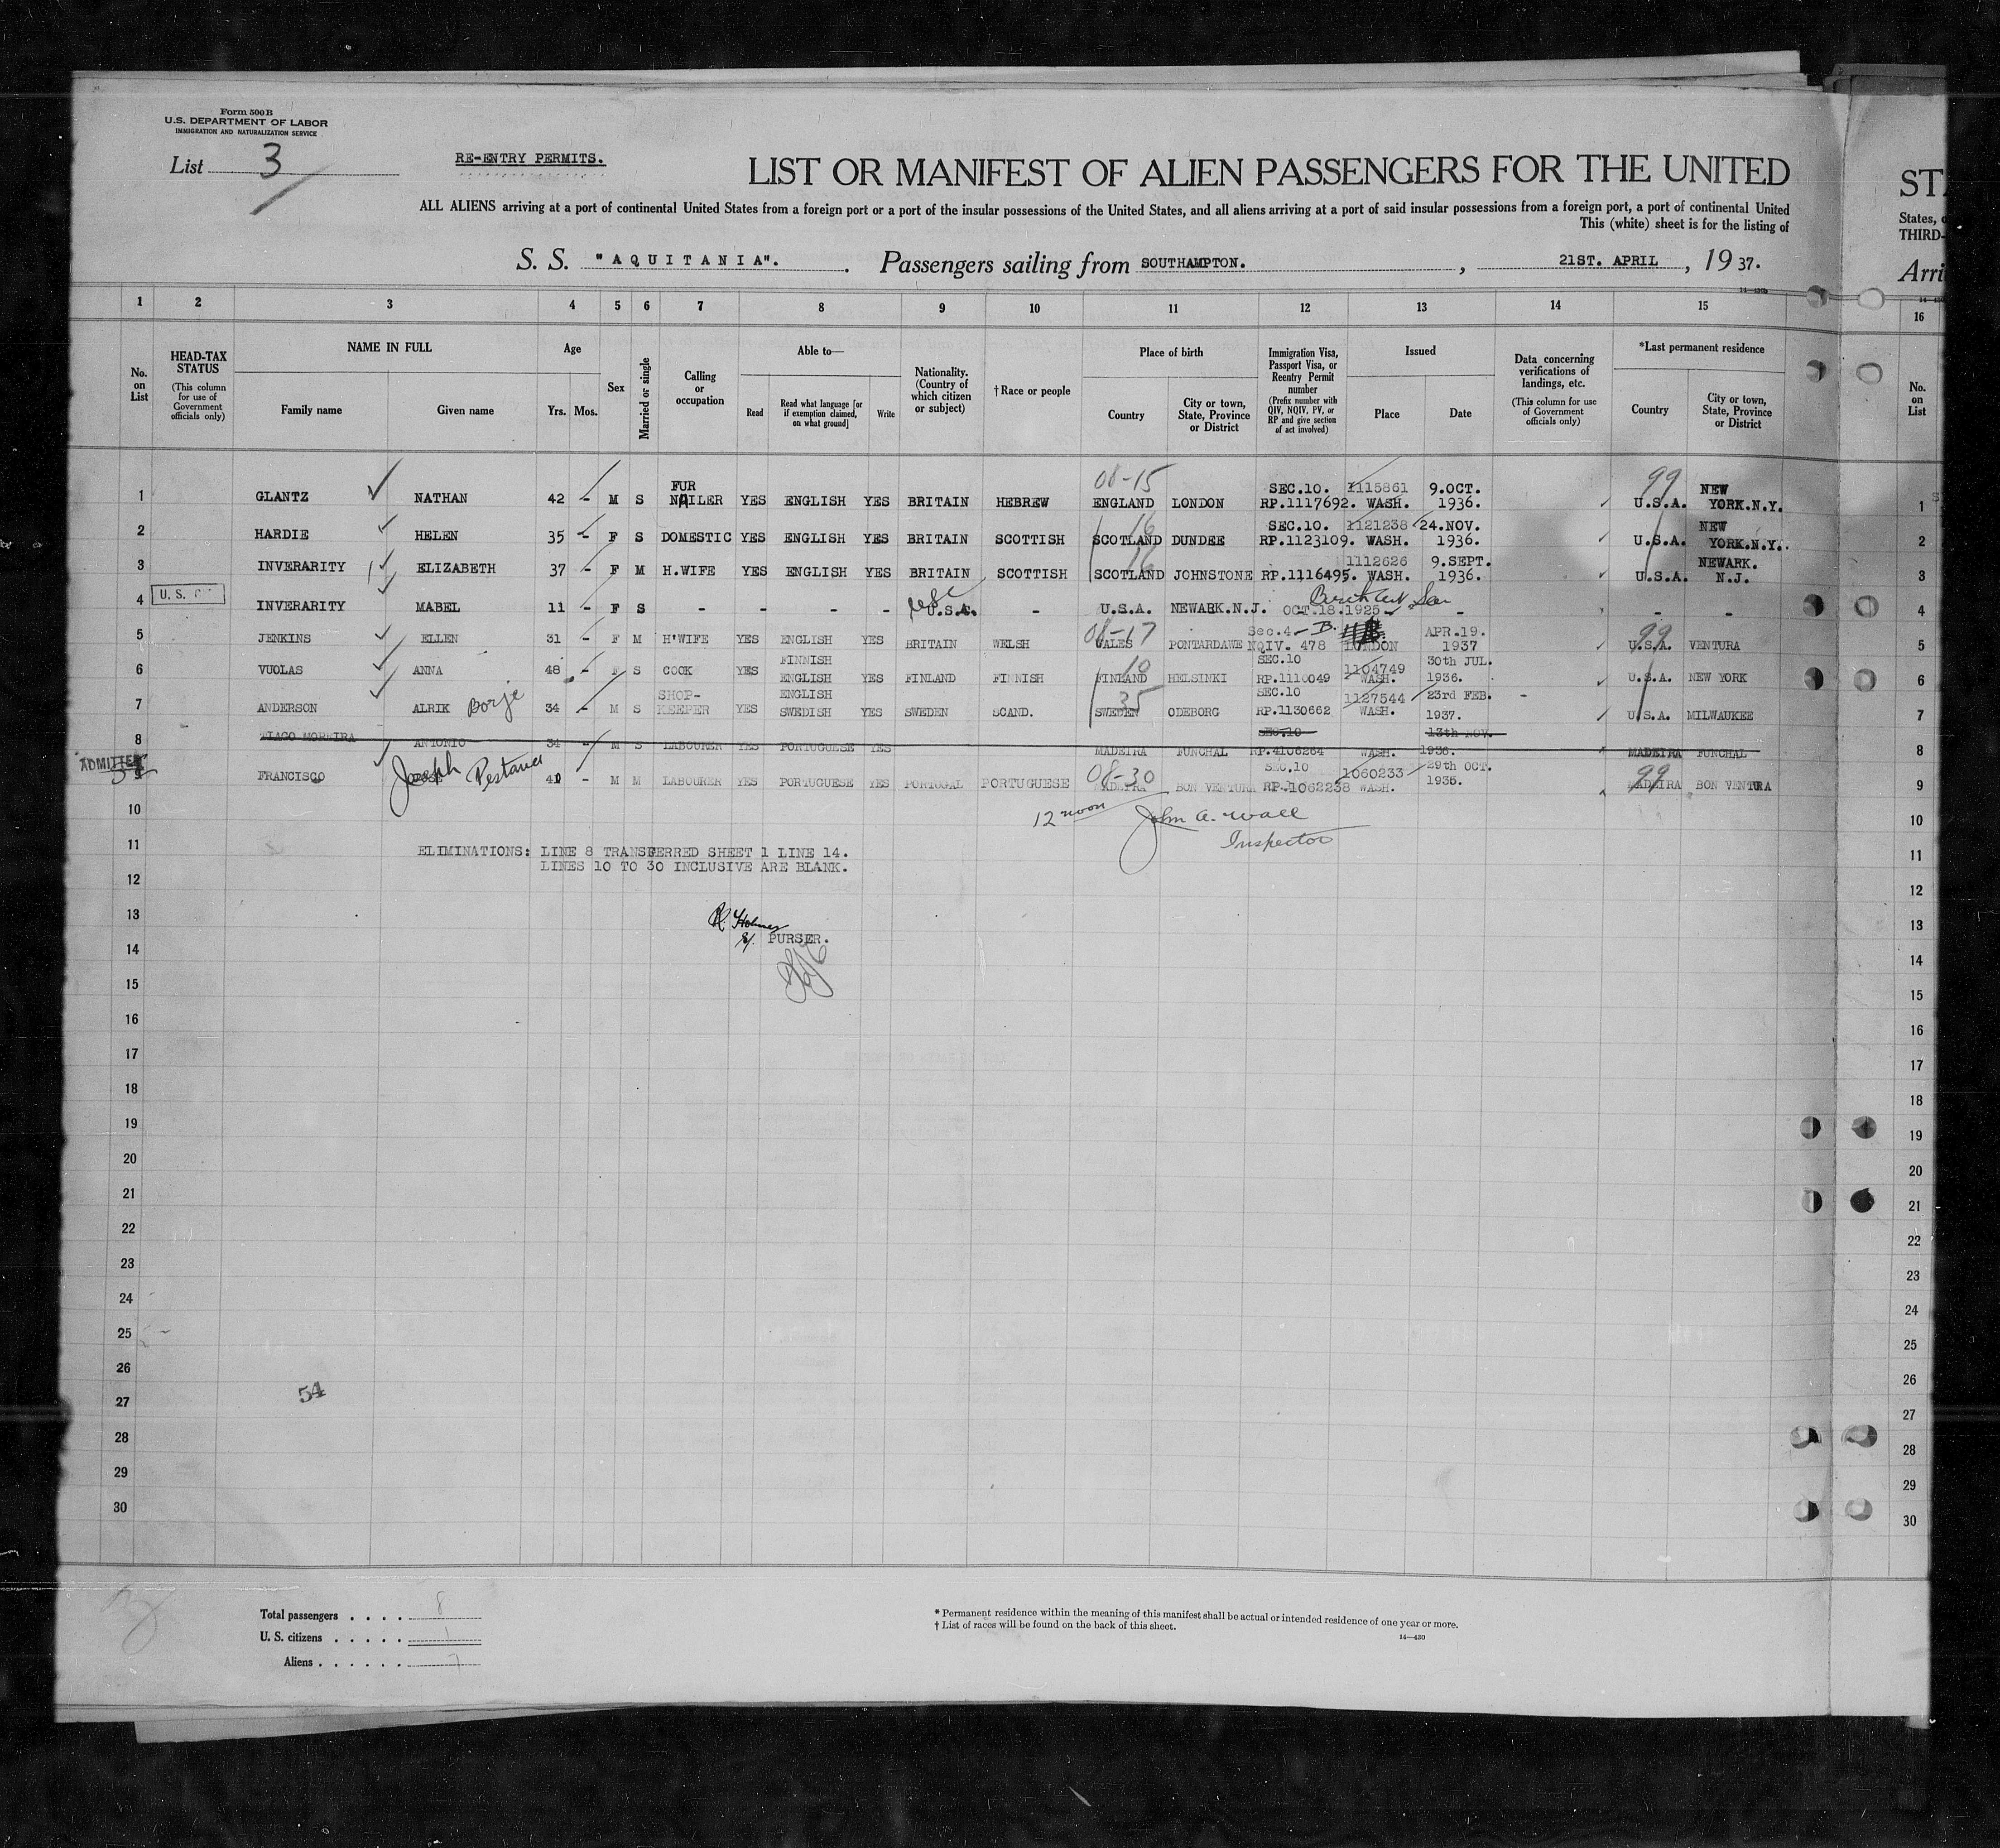 Form 500 B
U.S. DEPARTMENT OF LABOR
IMMIGRATION AND NATURALIZATION SERVICE
List 3
RE-ENTRY PERMITS.
LIST OR MANIFEST OF ALIEN PASSENGERS FOR THE UNITED
ST
ALL ALIENS arriving at a port of continental United States from a foreign port or a port of the insular possessions of the United States, and all aliens arriving at a port of said insular possessions from a foreign port, a port of continental United
States,
This (white) sheet is for the listing of
THIRD-
S. S. "AQUITANIA". Passengers sailing from SOUTHAMPTON. , 21ST. APRIL , 19 37.
Arri
1 2 3 4 5 6 7 8 9 10 11 12 13 14 15 16
No. on List
HEAD-TAX STATUS
(This column for use of Government officials only)
NAME IN FULL
Family name Given name
Age
Yrs. Mos.
Sex
Married or single
Calling or occupation
Able to—
Read
Read what language [or if exemption claimed, on what ground]
Write
Nationality. (Country of which citizen or subject)
† Race or people
Place of birth
Country
City or town, State, Province or District
Immigration Visa, Passport Visa, or Reentry Permit number
(Prefix number with QIV, NQIV, PV, or RP and give section of act involved)
Issued
Place Date
Data concerning verifications of landings, etc.
(This column for use of Government officials only)
*Last permanent residence
Country
City or town, State, Province or District
No. on List
08-15 99
FUR SEC.10. 1115861 9.OCT. NEW
1 GLANTZ NATHAN 42 - M S NAILER YES ENGLISH YES BRITAIN HEBREW ENGLAND LONDON RP.1117692. WASH. 1936. U.S.A. YORK.N.Y. 1
16 SEC.10. 1121238 24.NOV. NEW
2 HARDIE HELEN 35 - F S DOMESTIC YES ENGLISH YES BRITAIN SCOTTISH SCOTLAND DUNDEE RP.1123109. WASH. 1936. U.S.A. YORK.N.Y. 2
16 1112626 9.SEPT. NEWARK.
3 INVERARITY ELIZABETH 37 - F M H.WIFE YES ENGLISH YES BRITAIN SCOTTISH SCOTLAND JOHNSTONE RP.1116495. WASH. 1936. U.S.A. N.J. 3
U. S. C
4 INVERARITY MABEL 11 - F S - - - - U.S.A. - U.S.A. NEWARK.N.J. OCT.18.1925 - - - - 4
08-17 Sec.4-B. APR.19. 99
5 JENKINS ELLEN 31 - F M H'WIFE YES ENGLISH YES BRITAIN WELSH WALES PONTARDAWE NQIV. 478 LONDON 1937 U.S.A. VENTURA 5
FINNISH 10 SEC.10 1104749 30th JUL.
6 VUOLAS ANNA 48 - F S COOK YES ENGLISH YES FINLAND FINNISH FINLAND HELSINKI RP.1110049 WASH. 1936. U.S.A. NEW YORK 6
SHOP- ENGLISH 35 SEC.10 1127544 23rd FEB.
7 ANDERSON ALRIK Borje 34 - M S KEEPER YES SWEDISH YES SWEDEN SCAND. SWEDEN ODEBORG RP.1130662 WASH. 1937. U.S.A. MILWAUKEE 7
SEC.10 13th NOV.
8 TIAGO MOREIRA ANTONIO 34 - M S LABOURER YES PORTUGUESE YES MADEIRA FUNCHAL RP.4106264 WASH. 1936. MADEIRA FUNCHAL 8
ADMITTED
08-30 SEC.10 1060233 29th OCT. 99
9 FRANCISCO Joseph Pestana 40 - M M LABOURER YES PORTUGUESE YES PORTUGAL PORTUGUESE MADEIRA BON VENTURA RP.1062238 WASH. 1935. MADEIRA BON VENTURA 9
10 12 noon John A. Wall 10
Inspector
11 ELIMINATIONS: LINE 8 TRANSFERRED SHEET 1 LINE 14. 11
LINES 10 TO 30 INCLUSIVE ARE BLANK.
12 12
13 R. Holmes 13
PURSER.
14 14
15 15
16 16
17 17
18 18
19 19
20 20
21 21
22 22
23 23
24 24
25 25
26 26
54
27 27
28 28
29 29
30 30
Total passengers . . . . 8
U. S. citizens . . . . . 1
Aliens . . . . . . 7
* Permanent residence within the meaning of this manifest shall be actual or intended residence of one year or more.
† List of races will be found on the back of this sheet.
14—430